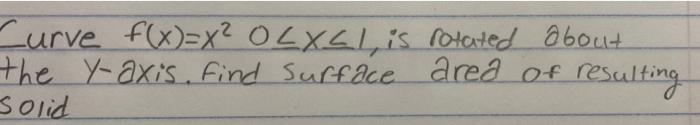 Curve f(x)=x² 0<x<1, is rotated about
the y-axis. Find surface area of resulting
solid